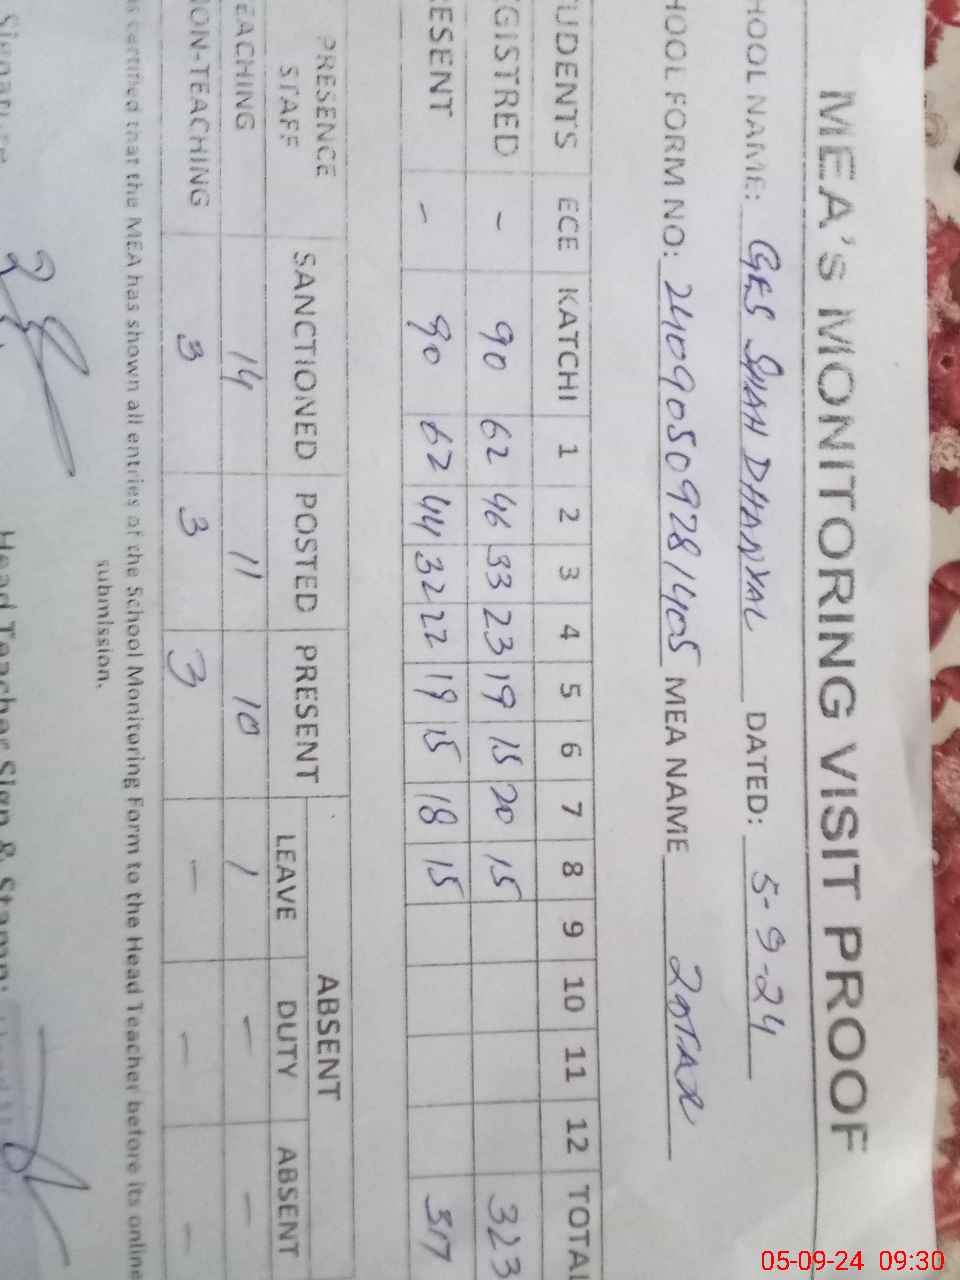 MEA's MONITORING VISIT PROOF
HOOL NAME: GES SHAH DHANYAL DATED: 5-9-24
HOOL FORM NO: 24090509281405 MEA NAME
UDENTS ECE KATCHI 1 2 3 4 5 6 7 8 9 10 11 12 TOTAL
GISTRED - 90 62 46 33 23 19 15 20 15 323
ESENT - 90 62 44 32 22 19 15 18 15 317
PRESENCE STAFF SANCTIONED POSTED PRESENT ABSENT
LEAVE DUTY ABSENT
EACHING 14 11 10 1 - -
ON-TEACHING 3 3 3 - - -
is certified that the MEA has shown all entries of the School Monitoring Form to the Head Teacher before its online
submission.
Signature Head Teacher Sign & Stamp:
05-09-24 09:30